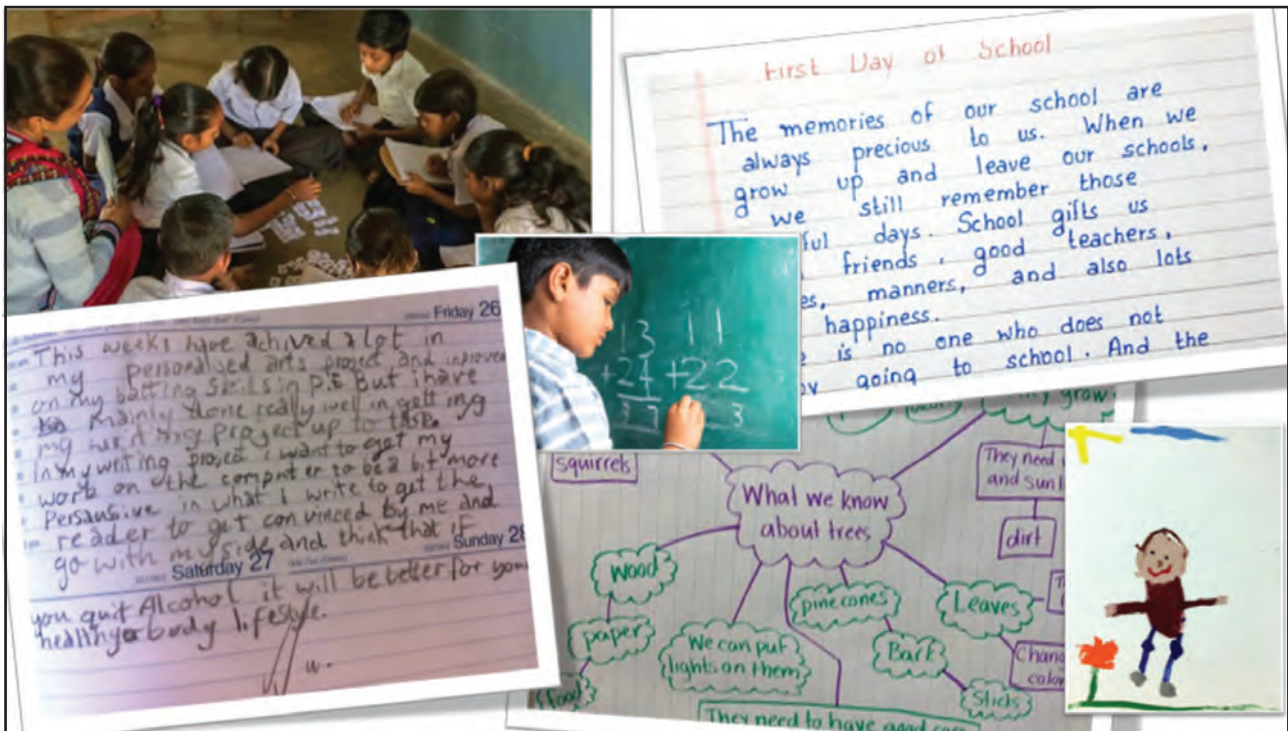 First Day of School
The memories of our school are
always precious to us. When we
grow up and leave our schools,
we still remember those
ful days. School gifts us
friends, good teachers,
es, manners, and also lots
happiness.
is no one who does not
going to school. And the
Friday 26
This weeks have achived a lot in
my personalised arts project and
on my batting skills in P.E But i have
mainly done really well in getting
my writing project up to
In my writing project i want to get my
work on the computer to be a bit more
Persausive in what I write to get the
reader to get convinced by me and
go with my side and think that if
Saturday 27
Sunday 28
you quit Alcohol it will be better for your
body lifestyle.
13 11
+24 +22
37 3
squirrels
What we know
about trees
They need
and sun
dirt
wood
paper
food
We can put
lights on them
pinecones
Bark
Sticks
Leaves
They need to have good